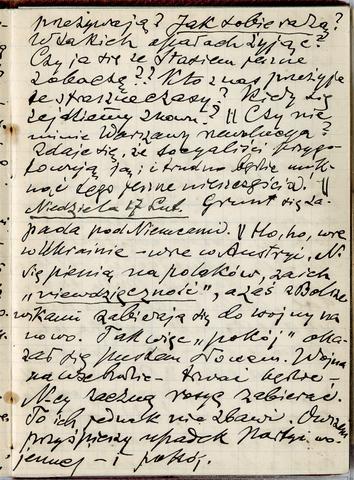 przeżywają? Jak sobie radzą?
W jakich opałach żyjąc?
Czy ja się ze Stasiem jeszcze
zobaczę?? Kto z nas przeżyje
te straszne czasy? Kiedy się
zejdziemy znowu? || Czy nie
minie Warszawy rewolucja?
Zdaje się, że socyaliści przygo-
towują ją; i trudno będzie unik-
nąć tego jeszcze nieszczęścia. ||
Niedziela 17 Lut. Grunt się za-
pada pod Niemcami. || Ho, ho, wre
w Ukrainie - wre w Austryi, Ni
się pienią na polaków, za ich
„niewdzięczność", a zaś z Bolsze-
wikami zabierają się do wojny na
nowo. Tak więc „pokój" oka-
zał się pustem słowem. Wojna
na wschodzie - trwać będzie -
N-cy zaczną rotę zabierać.
To ich jednak nie zbawi. Owszem
przyśpieszy upadek Partyi wo-
jennej - i pokój.